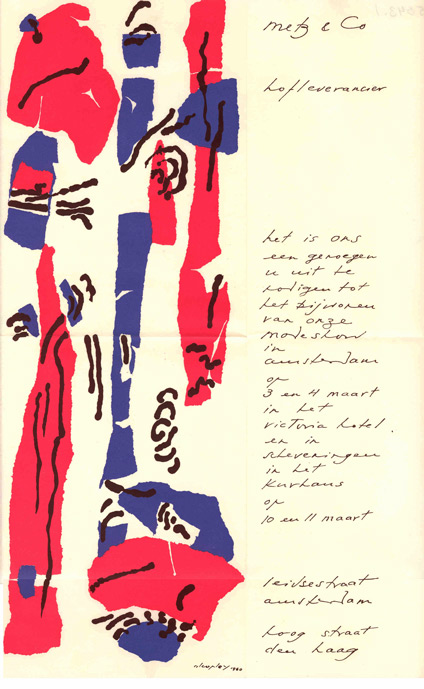 metz & Co
hofleverancier
het is ons
een genoegen
u uit te
nodigen tot
het bijwonen
van onze
modeshow
in
amsterdam
op
3 en 4 maart
in het
victoria hotel.
en in
scheveningen
in het
kurhaus
op
10 en 11 maart
leidsestraat
amsterdam
hoog straat
den haag